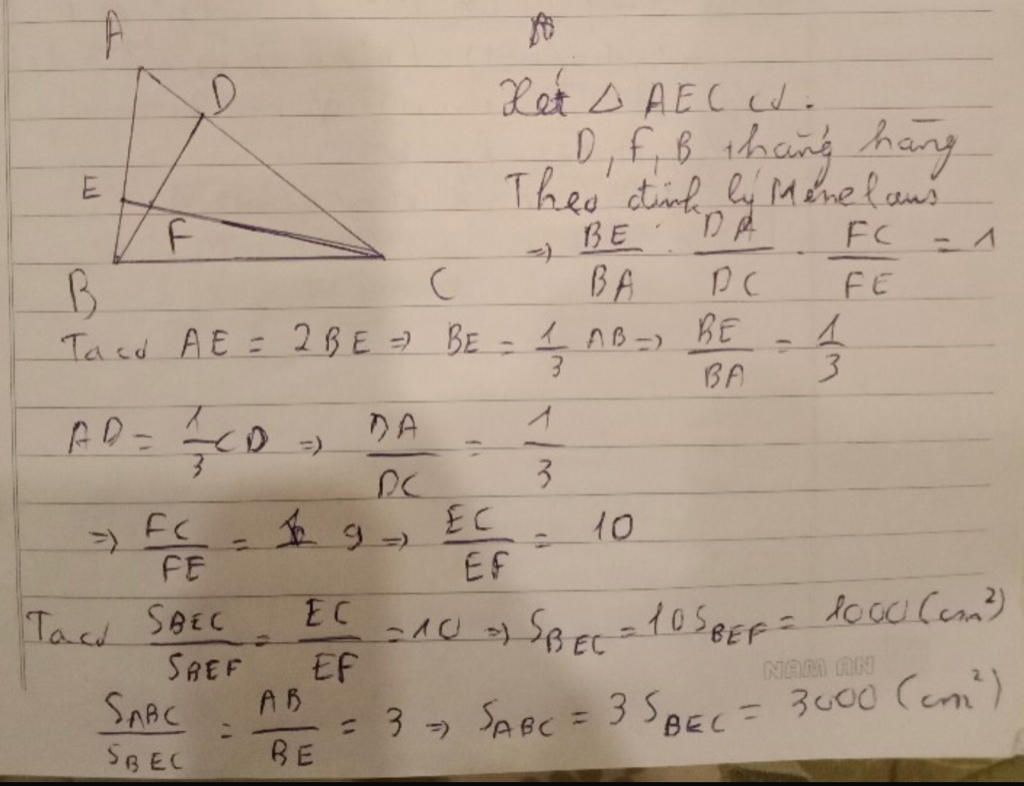 A
D
E
F
B
C
Xét Δ AEC có.
D, F, B thẳng hàng
Theo định lý Ménelaus
=> BE/BA . DA/DC . FC/FE = 1
Ta có AE = 2BE => BE = 1/3 AB => BE/BA = 1/3
AD = 1/3 CD => DA/DC = 1/3
=> FC/FE = 9 => EC/EF = 10
Ta có SBEC/SBEF = EC/EF = 10 => SBEC = 10SBEF = 1000 (cm²)
NAM AN
SABC/SBEC = AB/BE = 3 => SABC = 3 SBEC = 3000 (cm²)